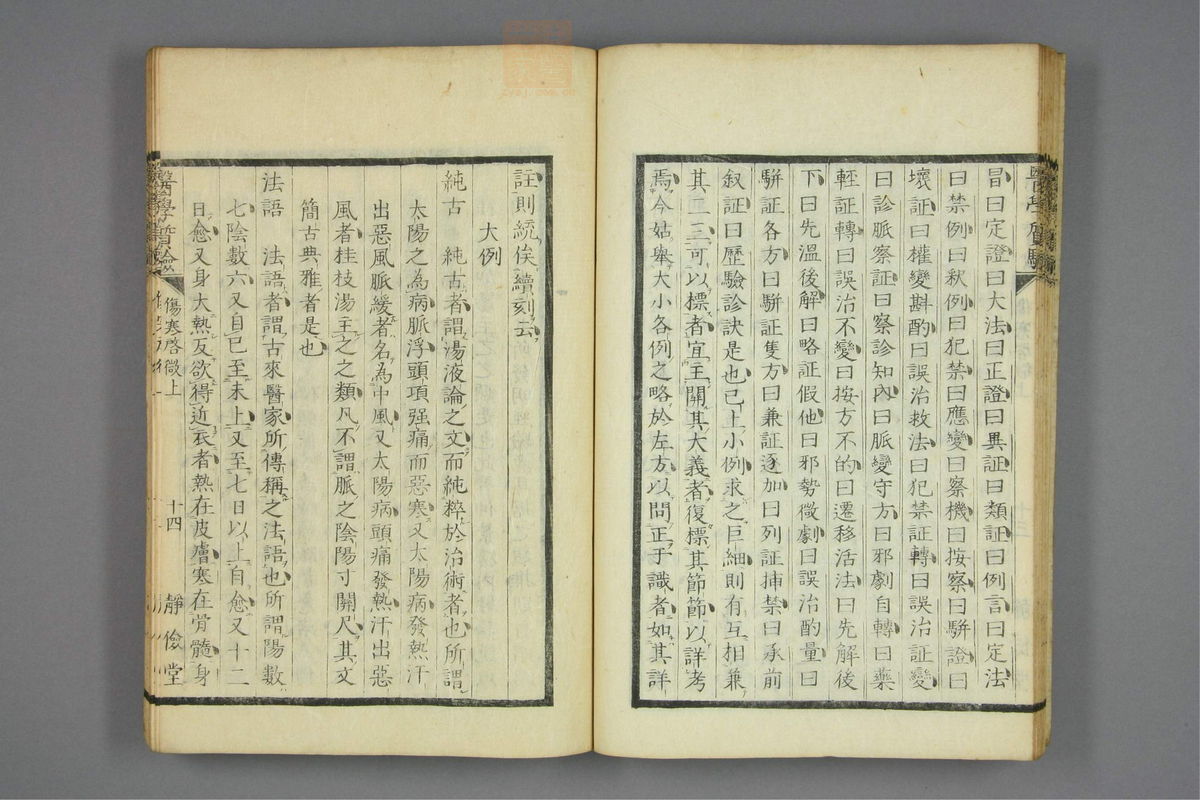 冒曰定證曰大法曰正證曰異証曰類証曰例言曰定法
曰禁例曰秋例曰犯禁曰應變曰察機曰按察曰駢證曰
壞証曰權變斟酌曰誤治救法曰犯禁証轉曰誤治証變
曰診脈察証曰察診知內曰脈變守方曰邪劇自轉曰藥
輕証轉曰誤治不變曰按方不的曰遷移活法曰先解後
下曰先溫後解曰略証假他曰邪勢微劇曰誤治酌量曰
駢証各方曰駢証隻方曰兼証逐加曰列証揷禁曰承前
叙証曰歷驗診訣是也已上小例求之巨細則有互相兼
其二三可以標者宜主關其大義者復標其節節以詳考
焉今姑舉大小各例之略於左方以問正于識者如其詳
註則統俟續刻云
大例
純古　純古者謂湯液論之文而純粹於治術者也所謂
太陽之為病脈浮頭項强痛而惡寒又太陽病發熱汗
出惡風脈緩者名為中風又太陽病頭痛發熱汗出惡
風者桂枝湯主之之類凡不謂脈之陰陽寸關尺其文
簡古典雅者是也
法語　法語者謂古來醫家所傳稱之法語也所謂陽數
七陰數六又自巳至未上又至七日以上自愈又十二
日愈又身大熱反欲得近衣者熱在皮膚寒在骨髓身
醫學質驗
傷寒啓微上
十四
靜儉堂